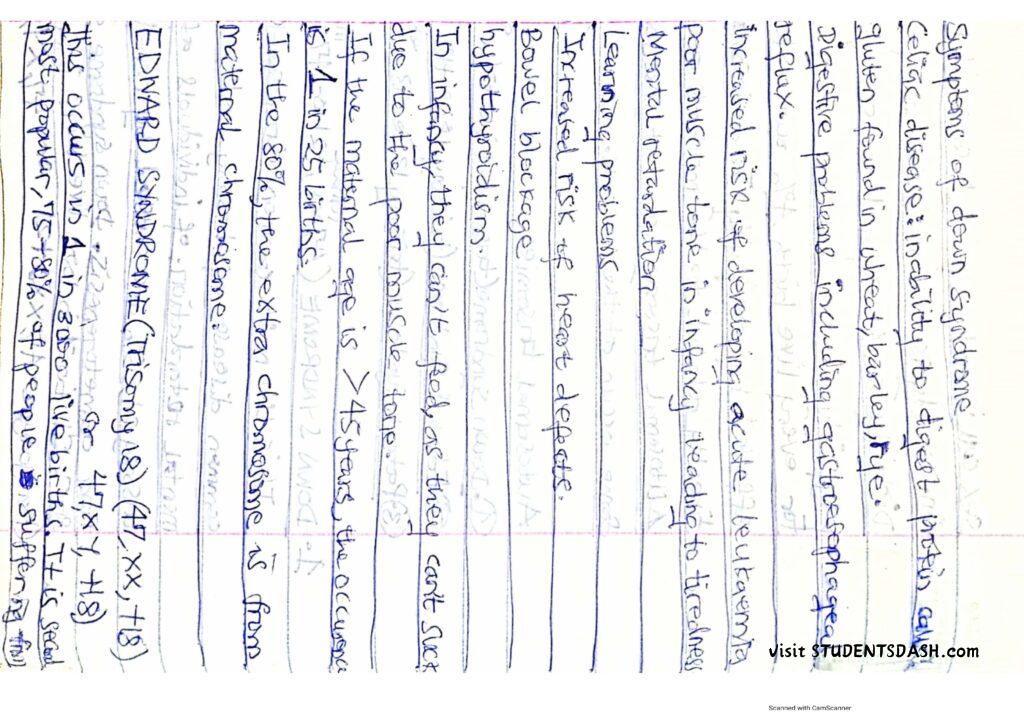 Symptoms of down syndrome
Celiac disease: inability to digest protein called
gluten found in wheat, barley, rye.
Digestive problems including gastroesophageal
reflux.
Increased risk of developing acute leukaemia
Poor muscle tone in infancy leading to tiredness
Mental retardation
Learning problems
Increased risk of heart defects.
Bowel blockage
hypothyroidism
In infancy, they can't feed, as they can't suck
due to the poor muscle tone.
If the maternal age is >45 years, the occurence
is 1 in 25 births.
In the 80%, the extra chromosome is from
maternal chromosome.
EDWARD SYNDROME (Trisomy 18) (47, XX, +18)
or 47, XY, +18)
This occurs in 1 in 3000 live births. It is second
most popular, 75-80% of people suffering
visit STUDENTSDASH.com
Scanned with CamScanner